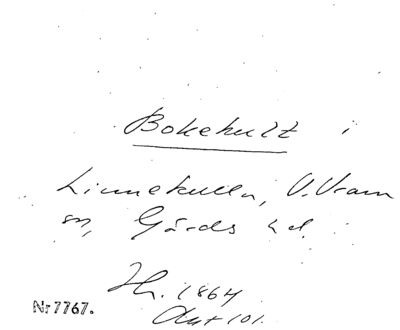 Bokehult i
Linnekulla, V. Vram
sn, Gärds hd.
Hr. 1864
Akt 101.
Nr 7767.